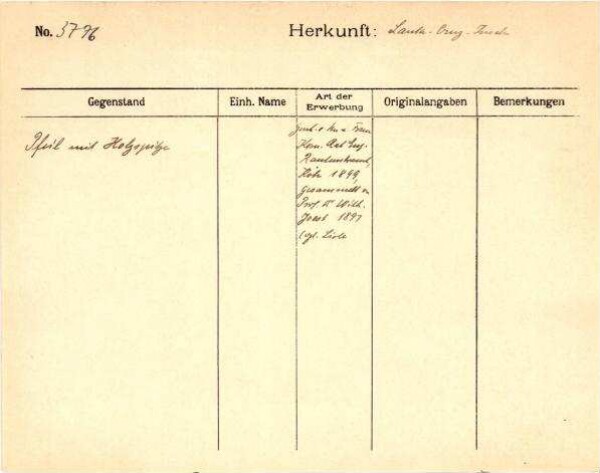 No. 3796
Herkunft: Santa-Cruz-Inseln
Gegenstand
Einh. Name
Art der
Erwerbung
Originalangaben
Bemerkungen
Pfeil mit Holzspitze
Gesch. v. Hn. u. Frau
Kom. Rat Eug.
Rautenstrauch,
Köln 1899,
gesammelt v.
Prof. Dr Wilh.
Joest 1897
vgl. Liste